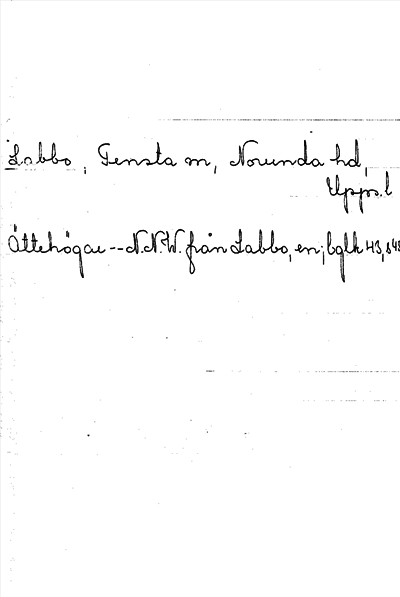 Labbo, Tensta sn, Norunda hd,
Upps.l
Ättehögar -- N.N.W. från Labbo, en; bglk 43, s48